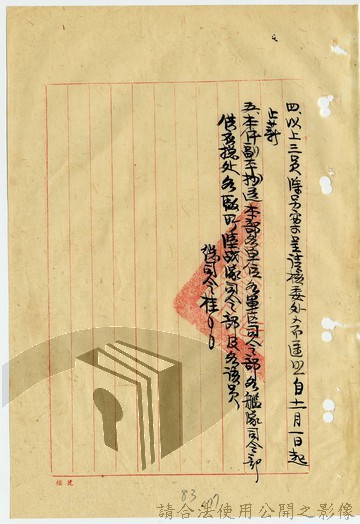 四、以上三員除另案呈請核委外希遵照自十一月一日起
止薪
五、本件副本抄送本部各單位各軍區司令部各艦隊司令部
供應總處各廠所陸戰隊司令部及各該員
司令桂〇〇
83
請合法使用公開之影像